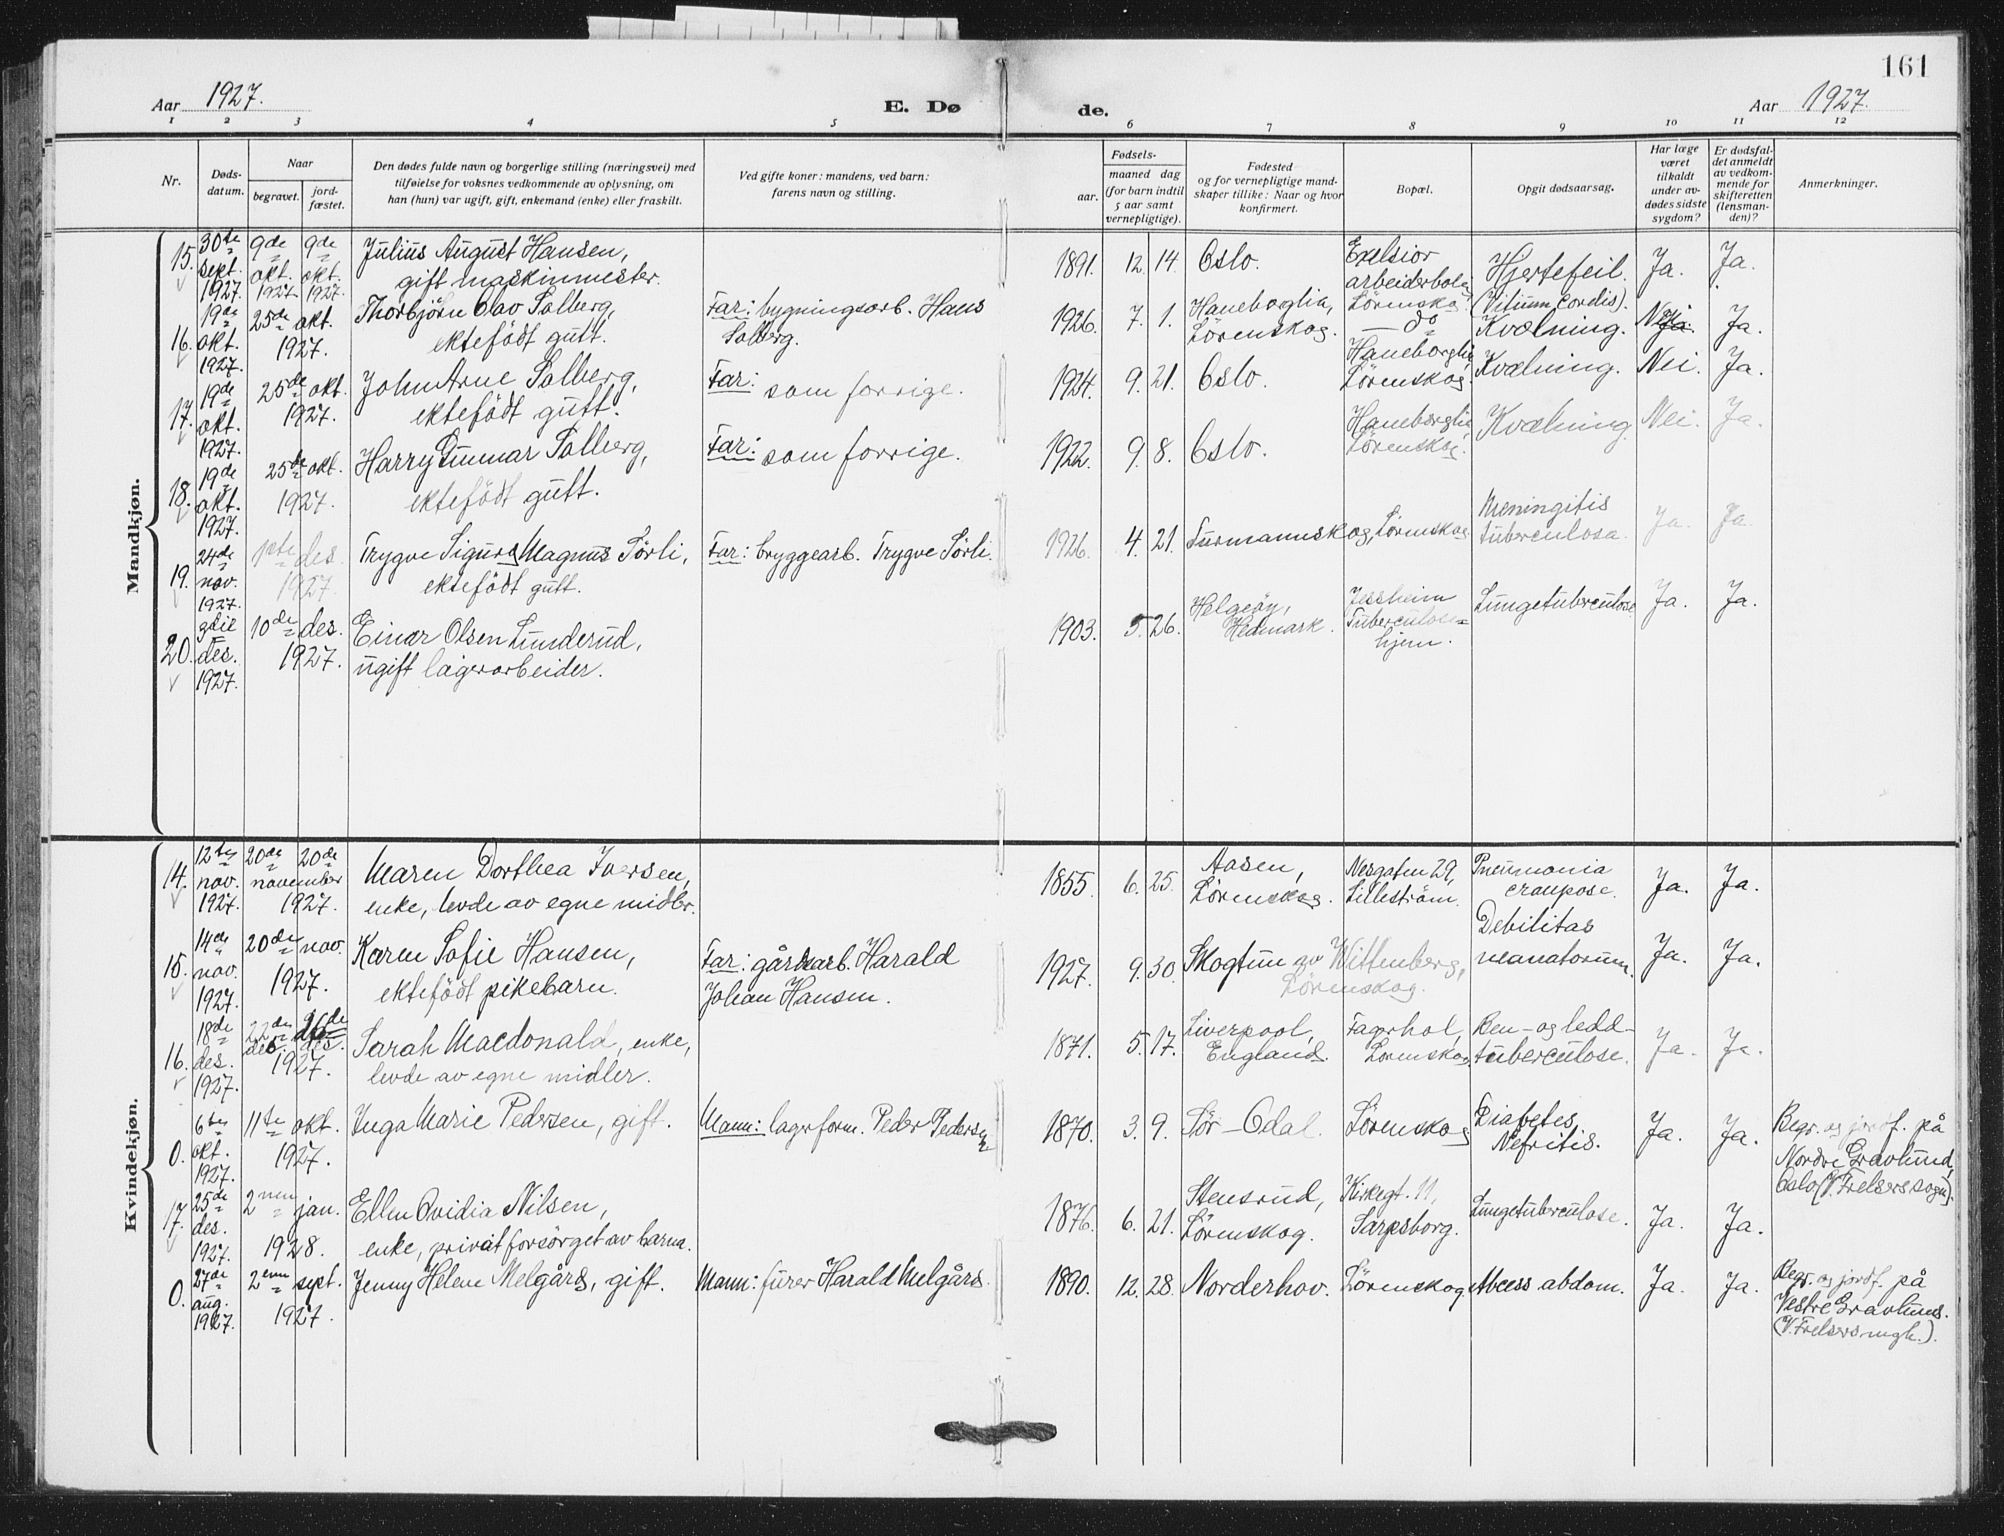 161
Aar 1927.
E. Dø
de.
Aar 1927.
1 2 3 4 5 6 7 8 9 10 11 12
Nr.
Døds-
datum.
Naar
begravet.
jord-
fæstet.
Den dødes fulde navn og borgerlige stilling (næringsvei) med
tilføielse for voksnes vedkommende av oplysning, om
han (hun) var ugift, gift, enkemand (enke) eller fraskilt.
Ved gifte koner: mandens, ved barn:
farens navn og stilling.
Fødsels-
aar.
maaned dag
(for barn indtil
5 aar samt
vernepligtige).
Fødested
og for vernepligtige mand-
skaper tillike: Naar og hvor
konfirmert.
Bopæl.
Opgit dødsaarsag.
Har læge
været
tilkaldt
under av-
dødes sidste
sygdom?
Er dødsfal-
det anmeldt
av vedkom-
mende for
skifteretten
(lensman-
den)?
Anmerkninger.
Mandkjøn.
15. 30te sept. 1927. 9de okt. 1927 9de okt. 1927.
Julius August Hansen,
gift maskinmester.
1891. 12. 14. Oslo.
Exelsior
arbeiderbolig
Lörenskog.
Hjertefeil.
(Vitium cordis).
Ja. Ja.
16. 19de okt. 1927. 25de okt. 1927.
Thorbjörn Olav Solberg,
ektefödt gutt.
Far: bygningsarb. Hans
Solberg.
1926. 7. 1. Haneborglia,
Lörenskog.
— do
Kvælning. Nei Ja. Ja.
17. 19de okt. 1927. 25de okt. 1927.
John Arne Solberg,
ektefödt gutt.
Far: som forrige.
1924. 9. 21. Oslo.
Haneborglia
Lörenskog.
Kvælning. Nei. Ja.
18. 19de okt. 1927. 25de okt. 1927.
Harry Gunnar Solberg,
ektefödt gutt.
Far: som forrige.
1922. 9. 8. Oslo.
Haneborglia
Lörenskog.
Kvælning. Nei. Ja.
19. 24de nov. 1927. 1ste des. 1927.
Trygve Sigurd Magnus Sörli,
ektefödt gutt.
Far: bryggearb. Trygve Sörli.
1926. 4. 21. Furmannskog, Lörenskog.
Meningitis
tuberculosa.
Ja. Ja
20. 3die des. 1927. 10de des. 1927.
Einar Olsen Lunderud,
ugift lagerarbeider.
1903. 5. 26. Helgeöy,
Hedmark.
Jessheim
Tuberculose-
hjem.
Lungetuberculose Ja. Ja.
Kvindekjøn.
14. 12te nov. 1927. 20de 20de november 1927.
Maren Dorthea Iversen,
enke, levde av egne midler.
1855. 6. 25. Aasen,
Lörenskog.
Nesgaten 29,
Lilleström.
Pneumonia
croupose.
Ja. Ja.
15. 14de nov. 1927. 20de nov. 1927.
Karen Sofie Hansen,
ektefödt pikebarn.
Far: gårdsarb. Harald
Johan Hansen.
1927. 9. 30. Skogtun av Wittenberg,
Lörenskog.
Debilitas
neanatorum.
Ja. Ja.
16. 18de des. 1927. 22de des. 26de des. 1927.
Sarah Macdonald, enke,
levde av egne midler.
1871. 5. 17. Liverpool,
England.
Fagerhol,
Lörenskog.
Ben- og ledd-
tuberculose.
Ja. Ja.
0. 6te okt. 1927. 11te okt. 1927.
Inga Marie Pedersen, gift.
Mann: lagerform. Peder Pedersen
1870. 3. 9. Sör-Odal. Lörenskog
Diabetes,
Nefritis.
Ja. Ja.
Begr. og jordf. på
Nordre Gravlund,
Oslo (V. Frelsers sogn).
17. 25de des. 1927. 2nen jan. 1928.
Ellen Ovidia Nilsen,
enke, privat forsörget av barna.
1876. 6. 21. Stensrud,
Lörenskog.
Kirkegt. 11,
Sarpsborg.
Lungetuberculose. Ja. Ja.
0. 27de aug. 1927. 2nen sept. 1927.
Jenny Helene Melgård, gift.
Mann: fürer Harald Melgård.
1890. 12. 28. Norderhov. Lörenskog Abcess abdom. Ja. Ja.
Begr. og jordf. på
Vestre Gravlund.
(V. Frelsers mgh.).